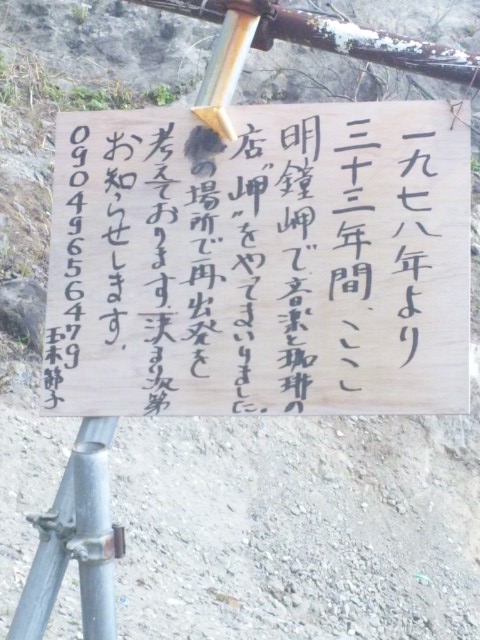 一九七八年より
三十三年間、ここ
明鐘岬で、音楽と珈琲の
店〝岬〟をやてまいりました。
の場所で再出発を
考えております、決まり次第
お知らせします、
09049656479
玉木節子